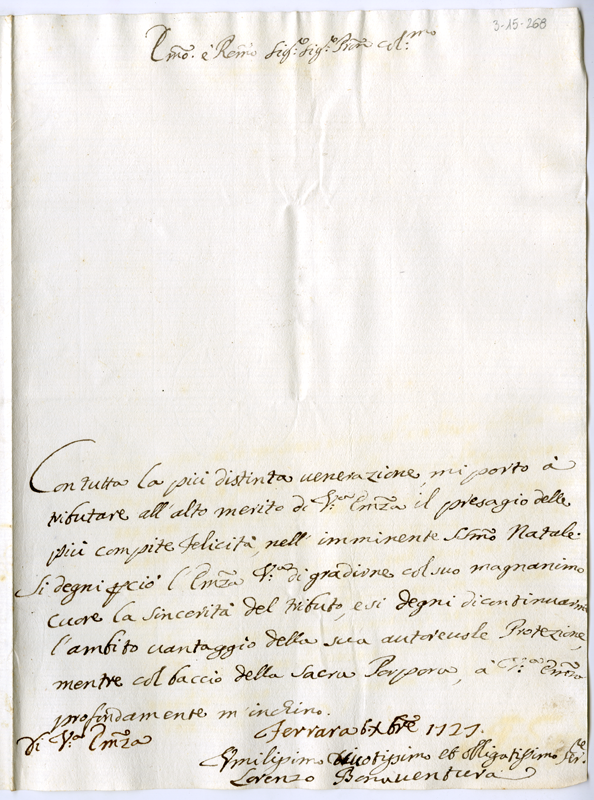 3-15-268
Emo. e Remo Sigr. Sigr. Pron Col:mo
Con tutta la più distinta venerazione, mi porto à
tributare all'alto merito di V:ra Emza il presagio delle
più compite felicità, nell'imminente SSmo Natale.
Si degni perciò l'Emza V:ra di gradirne col suo magnanimo
cuore la sincerità del tributo, e si degni di continuarmi
l'ambito vantaggio della sua autorevole Protezione,
mentre col baccio della Sacra Porpora, a V:ra Emza
profondamente m'inchino.
Di V:ra Emza
Ferrara Xbre 1727.
Umilissimo Divotissimo et Obligatissimo
Lorenzo Bonaventura